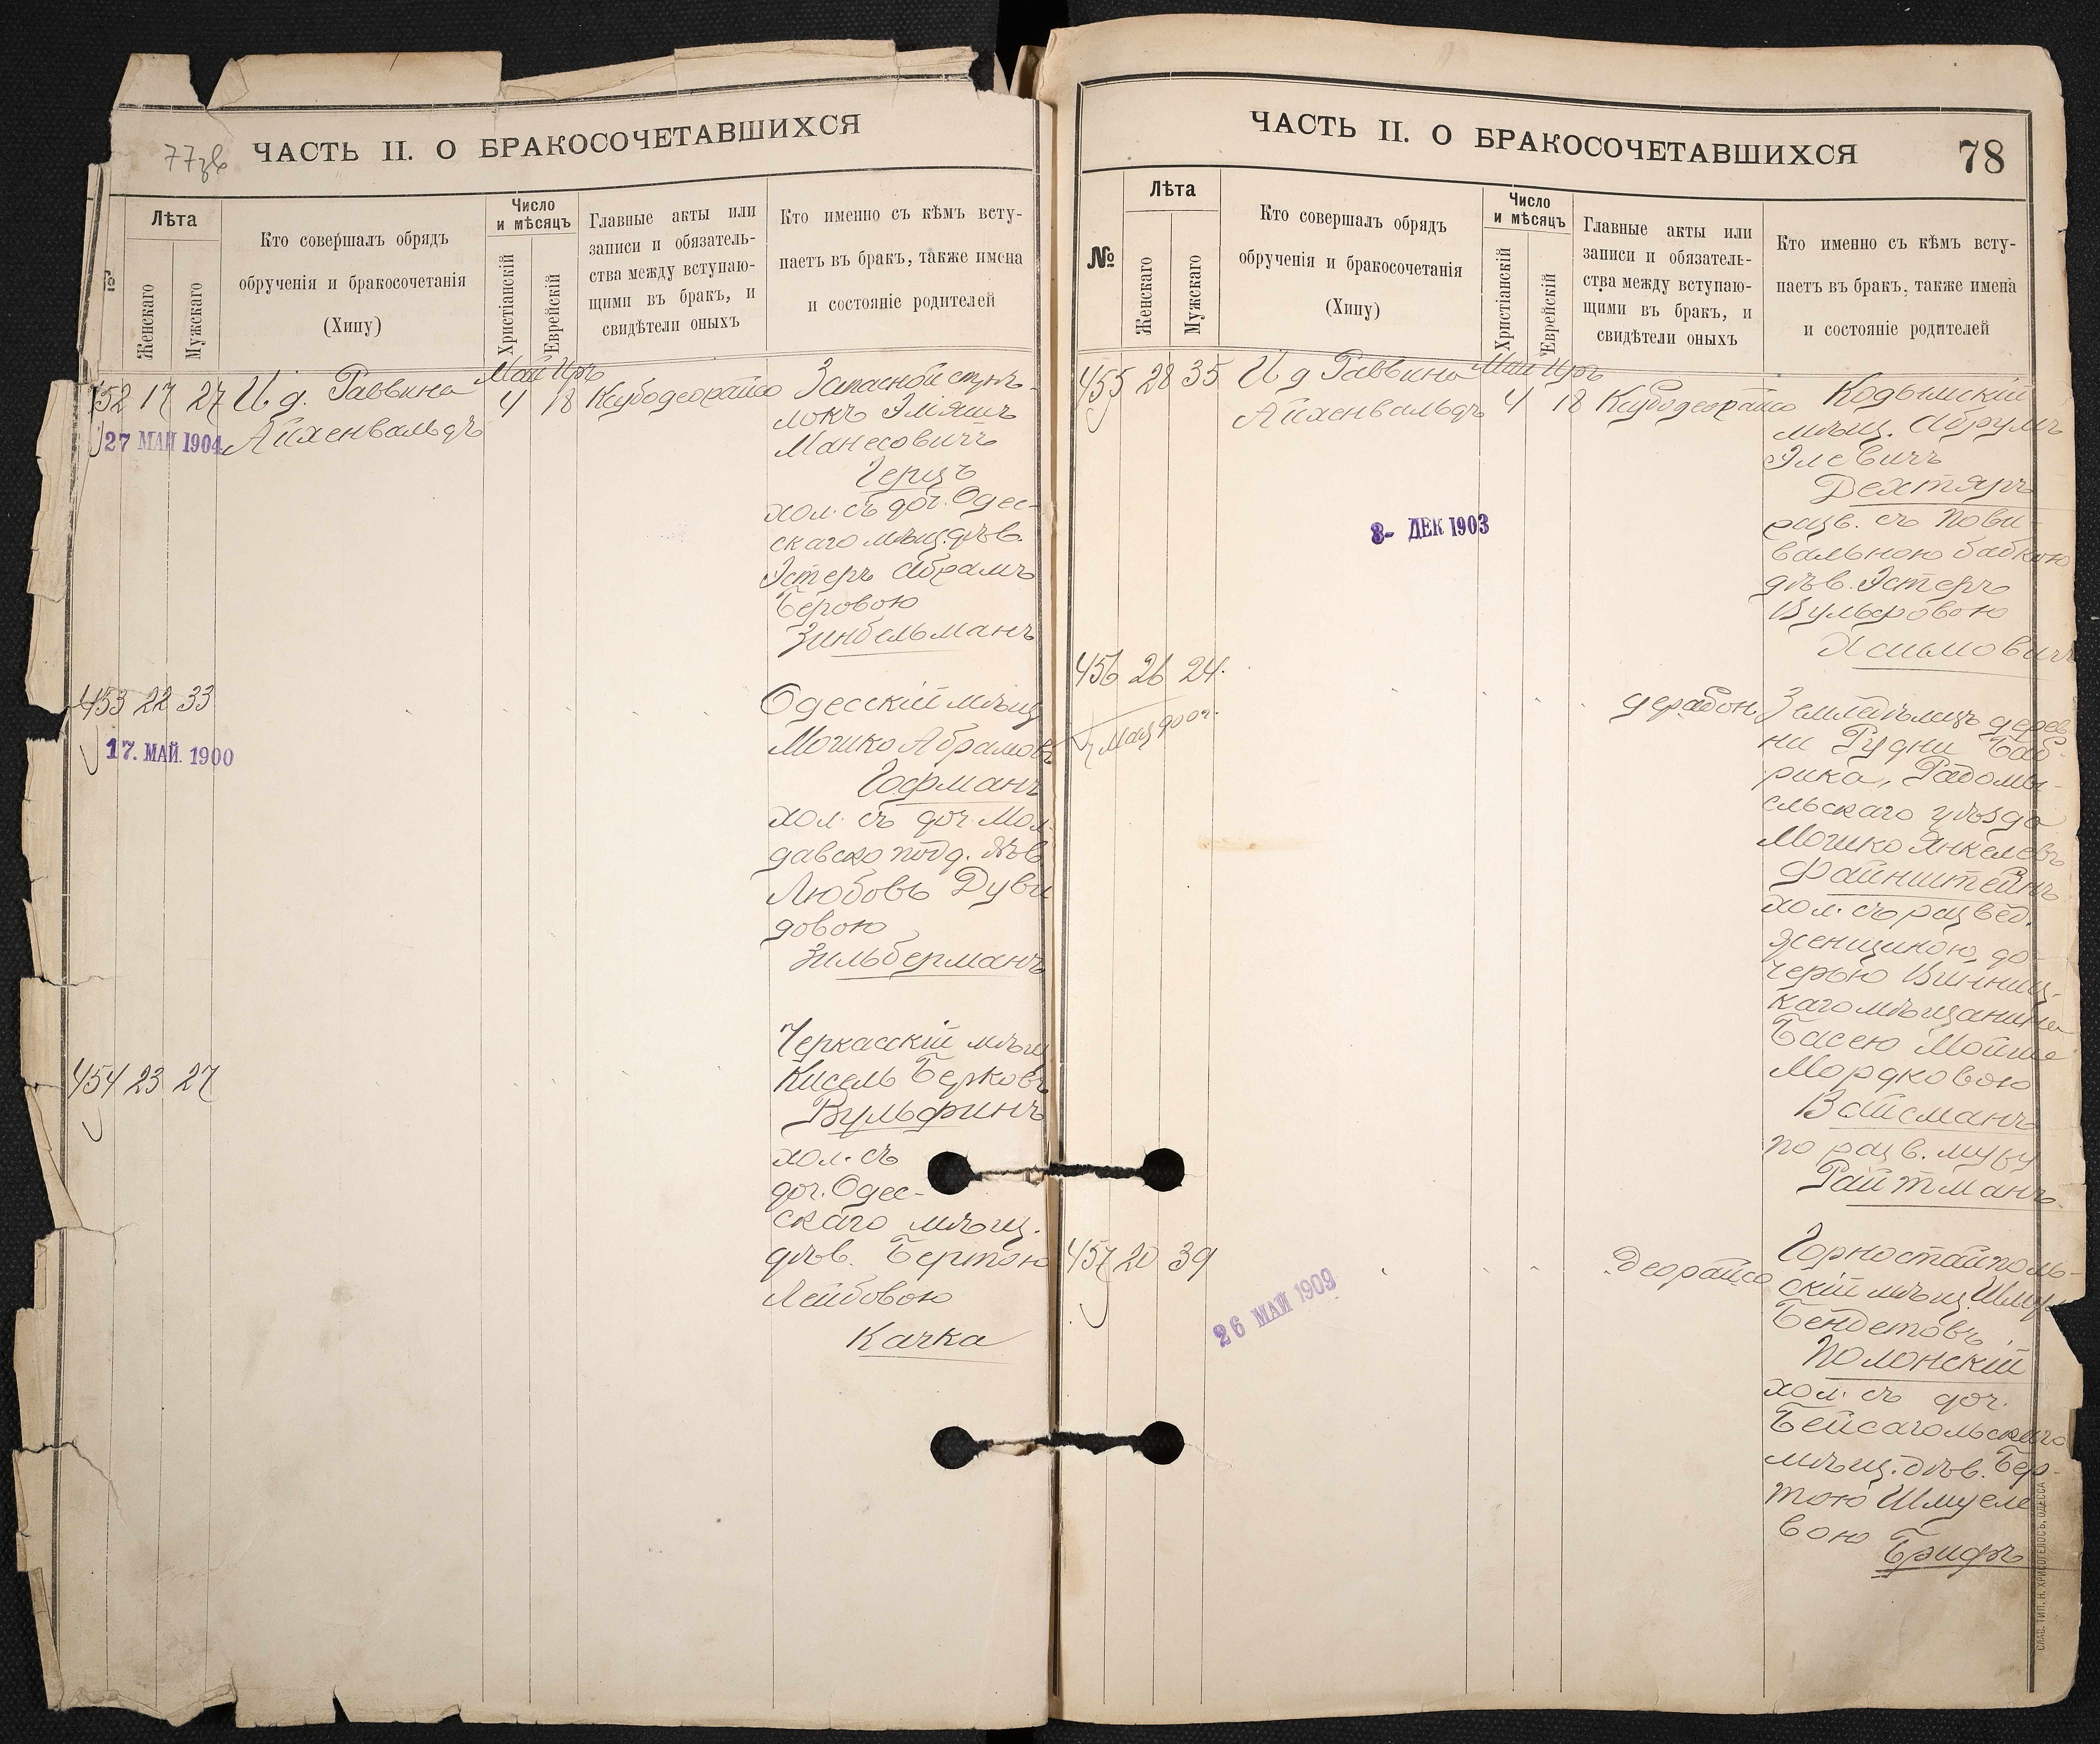 77зв
ЧАСТЬ II. О БРАКОСОЧЕТАВШИХСЯ
Лѣта
Женскаго
Мужскаго
Кто совершалъ обрядъ
обрученія и бракосочетанія
(Хипу)
Число
и мѣсяцъ
Христіанскій
Еврейскій
Главные акты или
записи и обязатель-
ства между вступаю-
щими въ бракъ, и
свидѣтели оныхъ
Кто именно съ кѣмъ всту-
паетъ въ бракъ, также имена
и состояніе родителей
452 17 27 И д. Раввина
Айхенвальдъ
Май Иръ
4 18
Кубодеорайсо
27 МАЙ 1904
Запасной стрѣ-
локъ Эліяшъ
Манесовичъ
Герцъ
хол. съ доч. Одес-
скаго мѣщ. дѣв.
Эстеръ Абрамъ
Беровою
Зинбельманъ
453 22 33
17. МАЙ. 1900
Одесскій мѣщ
Мошко Абрамовъ
Гофманъ
хол. съ доч. Мол-
давско подд. дѣв.
Любовь Дуви
довою
Зильберманъ
454 23 27
Черкасскій мѣщ
Кисель Берковъ
Вульфинъ
хол. съ
доч. Одес-
скаго мѣщ.
дѣв. Бертою
Лейбовою
Качка
ЧАСТЬ II. О БРАКОСОЧЕТАВШИХСЯ
78
№
Лѣта
Женскаго
Мужскаго
Кто совершалъ обрядъ
обрученія и бракосочетанія
(Хипу)
Число
и мѣсяцъ
Христіанскій
Еврейскій
Главные акты или
записи и обязатель-
ства между вступаю-
щими въ бракъ, и
свидѣтели оныхъ
Кто именно съ кѣмъ всту-
паетъ въ бракъ, также имена
и состояніе родителей
455 28 35 И д Раввина
Айхенвальдъ
Май Иръ
4 18
Кубодеорайсо
8- ДЕК 1903
Кодымскій
мѣщ. Абрумъ
Элевичъ
Дехтяръ
разв. съ пови-
вальною бабкою
дѣв. Эстеръ
Вульфовою
Хаимовичъ
456 26 24.
дерабон.
Земледѣлецъ дерев
ни Рудни Баб-
рика, Радомы-
сльскаго уѣзда
Мошко Янкелевъ
Файнштейнъ
хол. съ развед.
женщиною, до-
черью Винниц-
каго мѣщанина
Басею Мойше
Мордковою
Вайсманъ
по разв. мужу
Райтманъ
457 20 39
26 МАЙ 1909
Деорайсо
Горностайполь-
скій мѣщ. Шмуль
Бендетовъ
Полонскій
хол. съ доч.
Бейсагольскаго
мѣщ. дѣв. Бер-
тою Шмуеле
вою
Брифъ
СЛАВ. ТИП. Н. ХРИСОГЕЛОСЪ, ОДЕССА